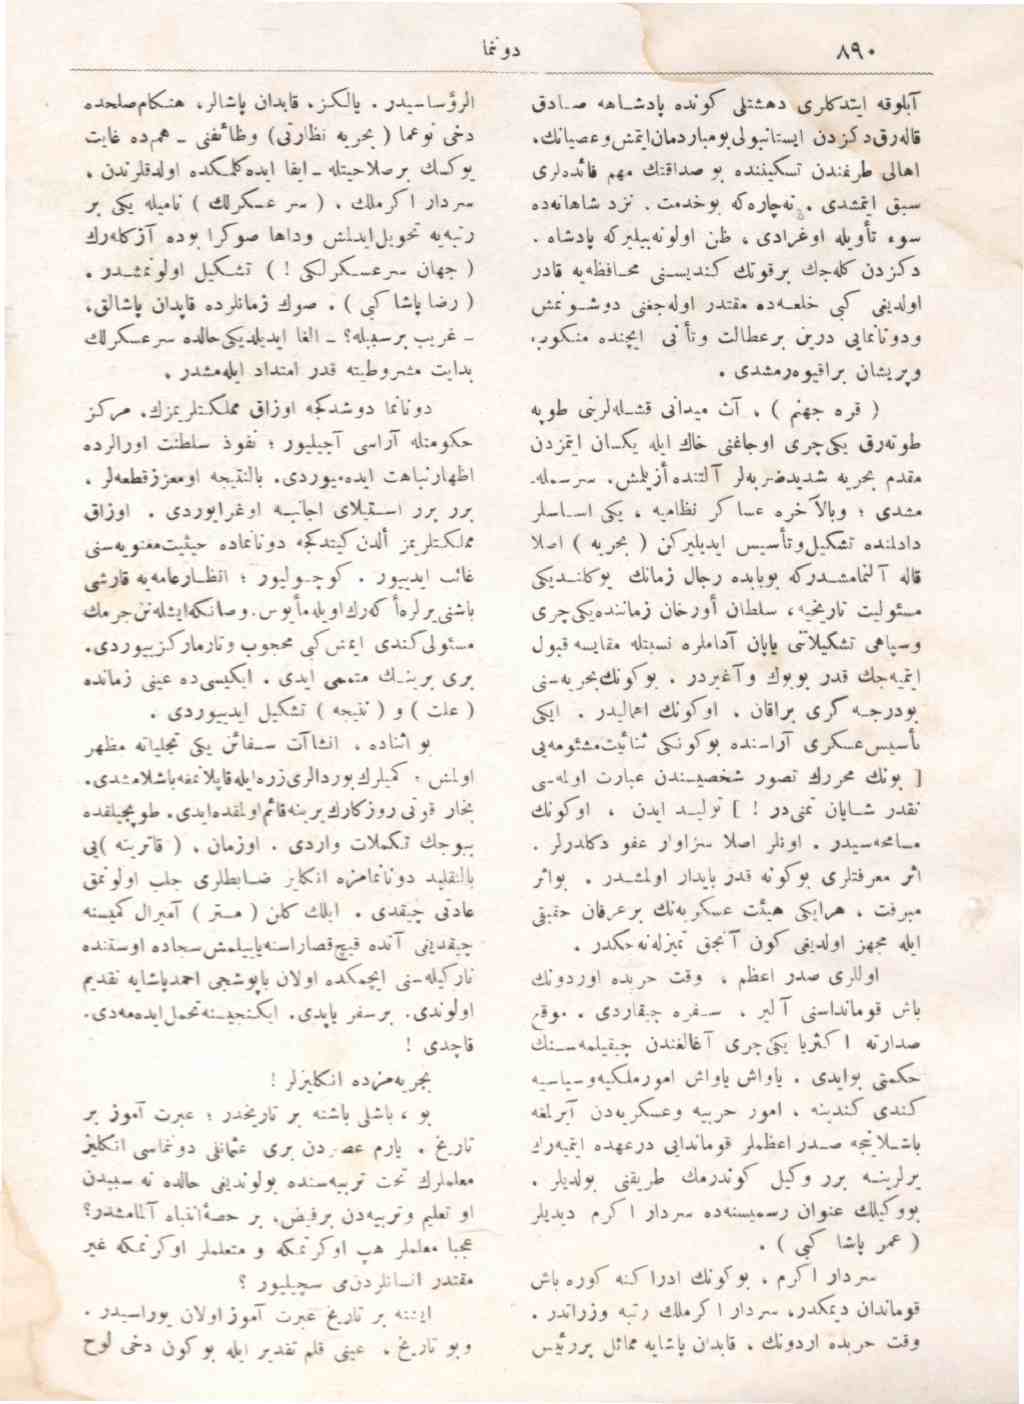 ٨٩٠
دونما
آبلوقه ایتدکلری دهشتلی کونده پادشاهه صادق
قاله‌رق دکزدن ایستانبولی بومباردمان ایتمش وعصیانك،
اهالی طرفندن تسکیننده بو صداقتك مهم فائده‌لری
سبق ایتمشدی . نه‌چاره‌که بوخدمت . نزد شاهانه‌ده
سوء تأویله اوغرادی ، ظن اولونه‌بیلیرکه پادشاه .
دکزدن کله‌جك برقوتك کندیسنی محافظه‌یه قادر
اولدیغی کبی خلعه‌ده مقتدر اوله‌جغنی دوشونمش
ودونانمایی درین برعطالت وتأنی ایچنده منکوب،
وپریشان براقیویرمشدی .
( قره جهنم ) ، آت میدانی قشله‌لرینی طوپه
طوته‌رق یکی‌چری اوجاغنی خاك ایله یکسان ایتمزدن
مقدم بحریه شدیدضربه‌لر آلتنده ازیلمش، سرسمله‌
مشدی ؛ وبالآخره عساکر نظامیه ، یکی اساسلر
دادلنده تشکیل وتأسیس ایدیلیرکن ( بحریه ) اصلا
قاله آلنمامشدرکه بوبابده رجال زمانك یوکلندیکی
مسئولیت تاریخیه، سلطان أورخان زماننده یکی‌چری
وسپاهی تشکیلاتنی یاپان آداملره نسبتله مقایسه قبول
ایتمیه‌جك قدر بویوك وآغیردر . بوکونك بحریه‌سنی
بودرجه گری براقان ، اوکونك اهمالیدر . ایکی
تأسیس عسکری آراسنده بوکونکی ثنائیت مشئومه‌یی
[ بونك محررك تصور شخصیسندن عبارت اولمه‌سی
نقدر شایان تمنی‌در ! ] تولید ایدن ، اوکونك
مسامحه‌سیدر . اونلر اصلا سزاوار عفو دکلدرلر .
اثر معرفتلری بوکونه قدر پایدار اولمشدر . بواثر
معرفت ، هرایکی هیئت عسکریه‌نك برعرفان حقیقی
ایله مجهز اولدیغی کون آنجق تمیزلنه‌جکدر .
اوللری صدر اعظم ، وقت حربده اوردونك
باش قوماندانسنی آلیر ، سفره چیقاردی . موقع
صدارته اکثریا یکی‌چری آغالغندن چیقیلمه‌سنك
حکمتی بوایدی . یاواش یاواش امورملکیه وسیاسیه
کندی کندینه ، امور حربیه وعسکریه‌دن آیرلمغه
باشلاینجه صدر اعظملر قوماندایی درعهده ایتمیه‌رك
یرلرینه برر وکیل کوندرمك طریقنی بولدیلر .
بووکیللك عنوان رسمیسنه‌ده سردار اکرم دیدیلر
( عمر پاشا کبی ) .
سردار اکرم ، بوکونك ادراکنه کوره باش
قوماندان دیمکدر، سردار اکرملك رتبه وزراتدر .
وقت حربده اردونك ، قاپدان پاشایه مماثل بررئیس
الرؤساسیدر . یالکز، قاپدان پاشالر، هنکام‌صلحده
دخی نوعما ( بحریه نظارتی ) وظائفنی ـ هم‌ده غایت
یوکسك برصلاحیتله ـ ایفا ایده‌کلمکده اولدقلرندن ،
سردار اکرملك ، ( سر عسکرلك ) نامیله یکی بر
رتبه‌یه تحویل ایدلمش وداها صوکرا بوده آزکله‌رك
( جهان سرعسکرلکی ! ) تشکیل اولونمشدر .
( رضا پاشا کبی ) . صوك زمانلرده قاپدان پاشالق،
ـ غریب برسببله؟ ـ الغا ایدیلدیکی‌حالده سرعسکرلك
بدایت مشروطیته قدر امتداد ایله‌مشدر .
دونانما دوشدکجه اوزاق مملکتلریمزك، مرکز
حکومتله آراسی آچیلیور ؛ نفوذ سلطنت اورالرده
اظهارنباهت ایده‌میوردی. بالنتیجه اومعززقطعه‌لر ،
برر برر استیلای اجانبه اوغرایوردی . اوزاق
مملکتلریمز ألدن کیتدکجه دونانماده حیثیت‌معنویه‌سنی
غائب ایدییور . کوچولیور ؛ انظارعامه‌یه قارشی
باشنی یرلره أکه‌رك اویله مأیوس. وصانکه ایشله‌نن‌جرمك
مسئولی کندی ایمش‌کبی محجوب وتارمارکزییوردی.
بری برینك متممی ایدی . ایکیسی‌ده عینی زمانده
( علت ) و ( نتیجه ) تشکیل ایدییوردی .
بو اثناده ، انشاآت سفائن یکی تجلیاته مظهر
اولمش ؛ کمیلرك بوردالری‌زره‌ایله‌قاپلانمغه‌باشلامشدی.
بخار قوتی روزکارك یرینه‌قائم‌اولمقده‌ایدی. طوپجیلقده
بیوجك تکملات واردی . اوزمان ، ( قاترینه )یی
بالتقلید دونانمامزه انکلیز ضابطلری جلب اولونمق
عادتی چیقدی . ایلك کلن ( مستر ) آمیرال کمیسنه
چیقدیغی آنده قیچ‌قصاراسنه‌یاییلمش‌سجاده اوستنده
نارکیله‌سنی ایچمکده اولان پاپوشجی احمدپاشایه تقدیم
اولوندی. برسفر یاپدی. ایکنجیسنه‌تحمل‌ایده‌مه‌دی.
قاچدی !
بحریه‌مزده انکلیزلر !
بو ، باشلی باشنه بر تاریخدر ؛ عبرت آموز بر
تاریخ . یارم عصردن بری عثمانلی دونماسی انکلیز
معلملرك تحت تربیه‌سنده بولوندیغی حالده نه سببدن
او تعلیم وتربیه‌دن برفیض، بر حصهٔ انتباه آلامشدر؟
عجبا معلملر هپ اوکرتمکه و متعلملر اوکرنمکه غیر
مقتدر انسانلردن‌می سچیلیور ؟
ایشته بر تاریخ عبرت آموز اولان بوراسیدر .
وبو تاریخ ، عینی قلم تقدیر ایله بو کون دخی لوح